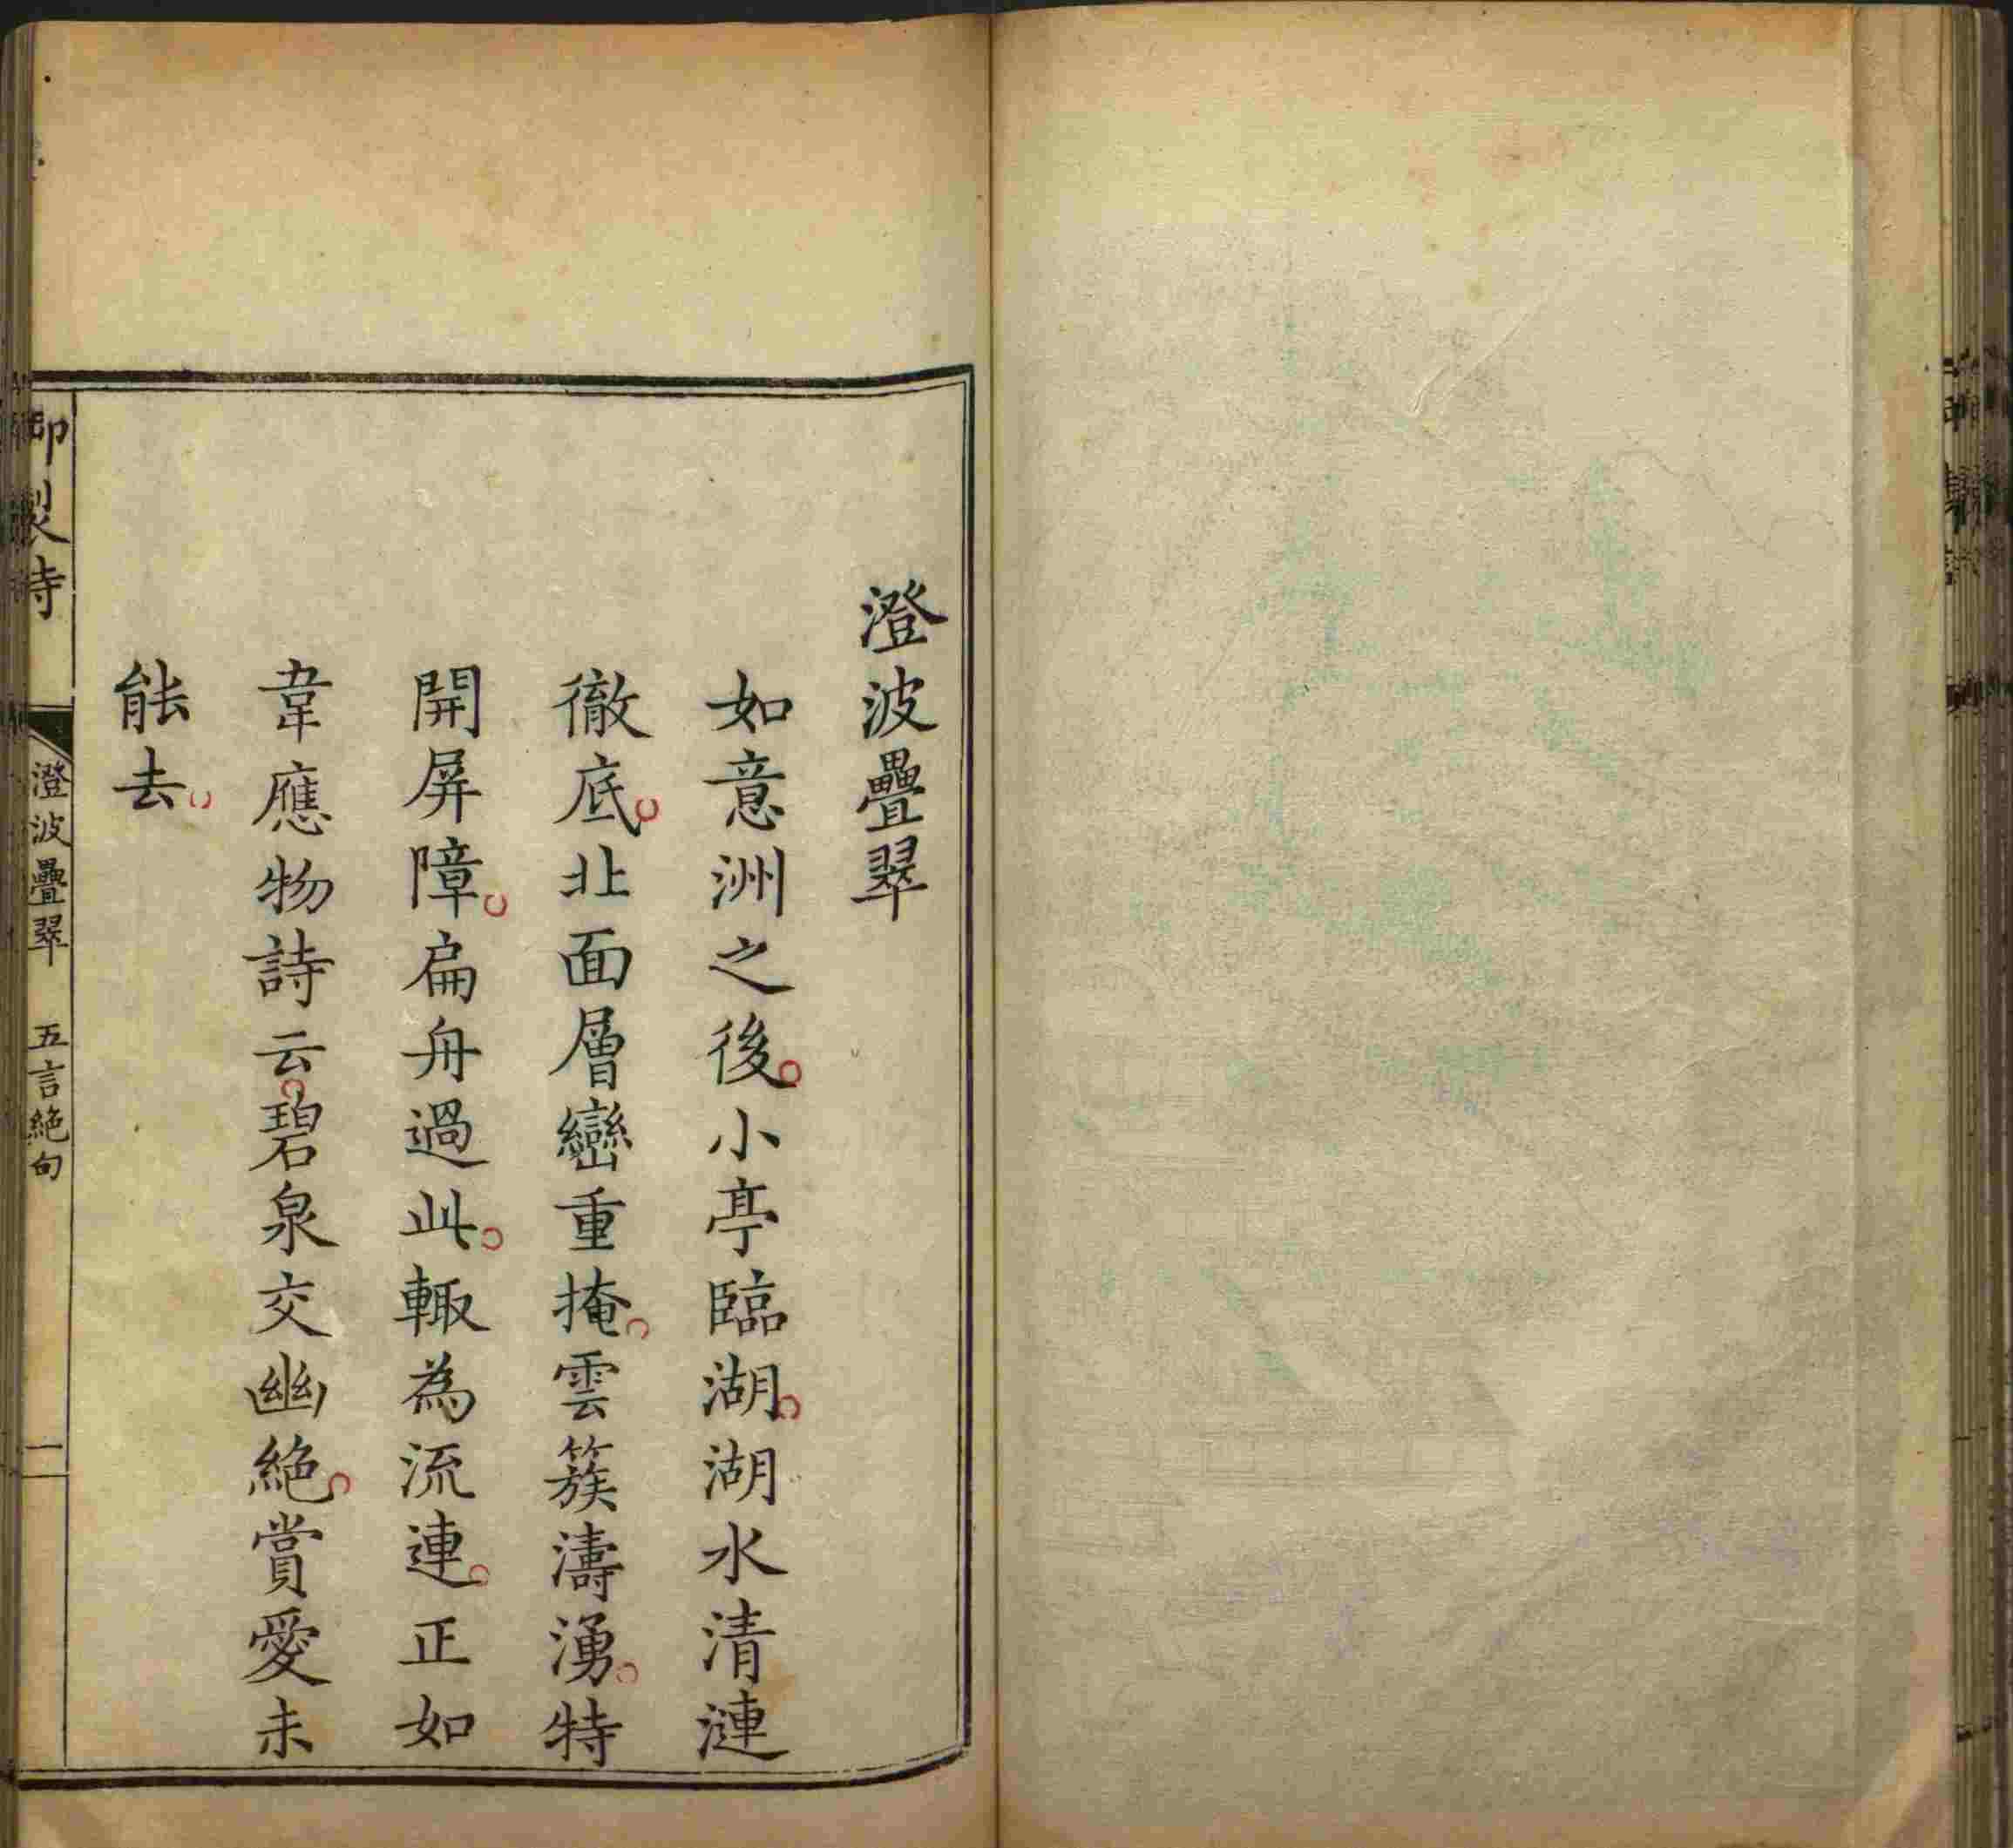 澄波疊翠
如意洲之後。小亭臨湖。湖水清漣
徹底。北面層巒重掩。雲簇濤湧。特
開屏障。扁舟過此。輒為流連。正如
韋應物詩云。碧泉交幽絶。賞愛未
能去。
御製詩 澄波疊翠 五言絶句 一